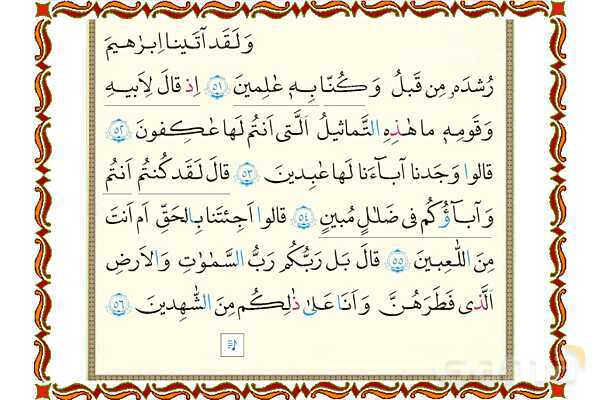 وَ لَقَد آتَینا اِبرٰهیمَ
رُشدَهٗ مِن قَبلُ وَ کُنّا بِهٖ عٰلِمینَ ﴿٥١﴾ اِذ قالَ لِاَبیـهِ
وَ قَومِهٖ ما هٰذِهِ التَّماثیلُ الَّتی اَنتُم لَها عٰکِفونَ ﴿٥٢﴾
قالوا وَجَدنا آبـآءَنا لَها عٰبِدینَ ﴿٥٣﴾ قالَ لَقَد کُنتُم اَنتُم
وَ آبـآؤُکُم فی ضَلالٍ مُبینٍ ﴿٥٤﴾ قالوا اَجِئتَنا بِالحَقِّ اَم اَنتَ
مِنَ اللّٰعِبینَ ﴿٥٥﴾ قالَ بَل رَبُّکُم رَبُّ السَّمٰوٰتِ وَ الاَرضِ
الَّذی فَطَرَهُنَّ وَ اَنَا عَلیٰ ذٰلِکُم مِنَ الشّٰهِدینَ ﴿٥٦﴾